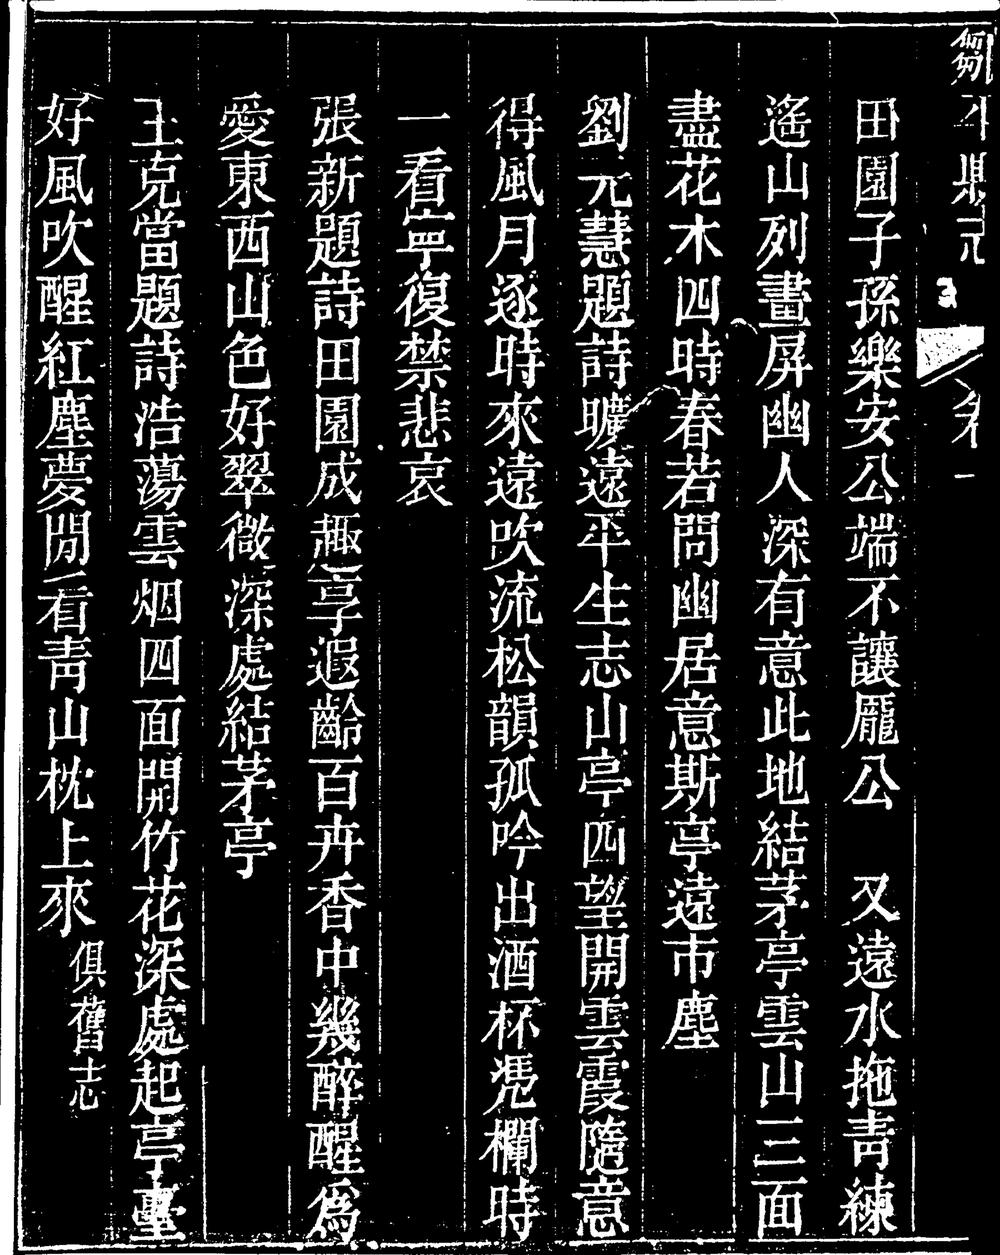 田園子孫樂安公端不讓龎公　又遠水拖青練
遙山列畫屏幽人深有意此地結茅亭雲山三面
盡花木四時春若問幽居意斯亭遠市塵
劉元慧題詩曠遠平生志山亭四望開雲霞隨意
得風月逐時來遠吹流松韻孤吟出酒杯凭欄時
一看寧復禁悲哀
張新題詩田園成趣享遐齡百卉香中幾醉醒爲
愛東西山色好翠微深處結茅亭
王克當題詩浩蕩雲烟四面開竹花深處起亭臺
好風吹醒紅塵夢閒看青山枕上來
俱舊志